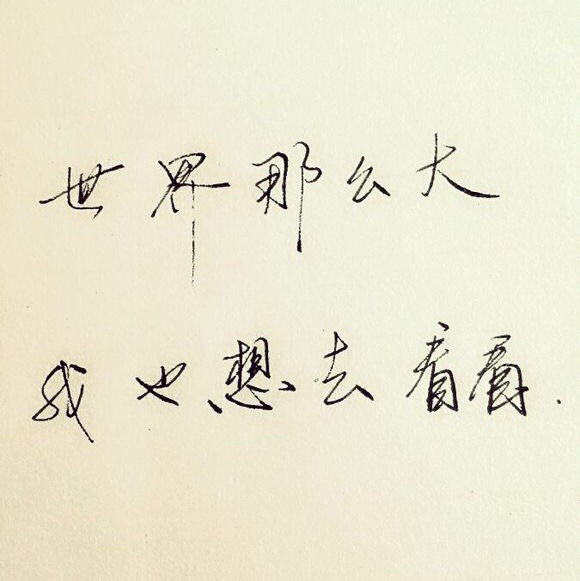 世界那么大
我也想去看看.